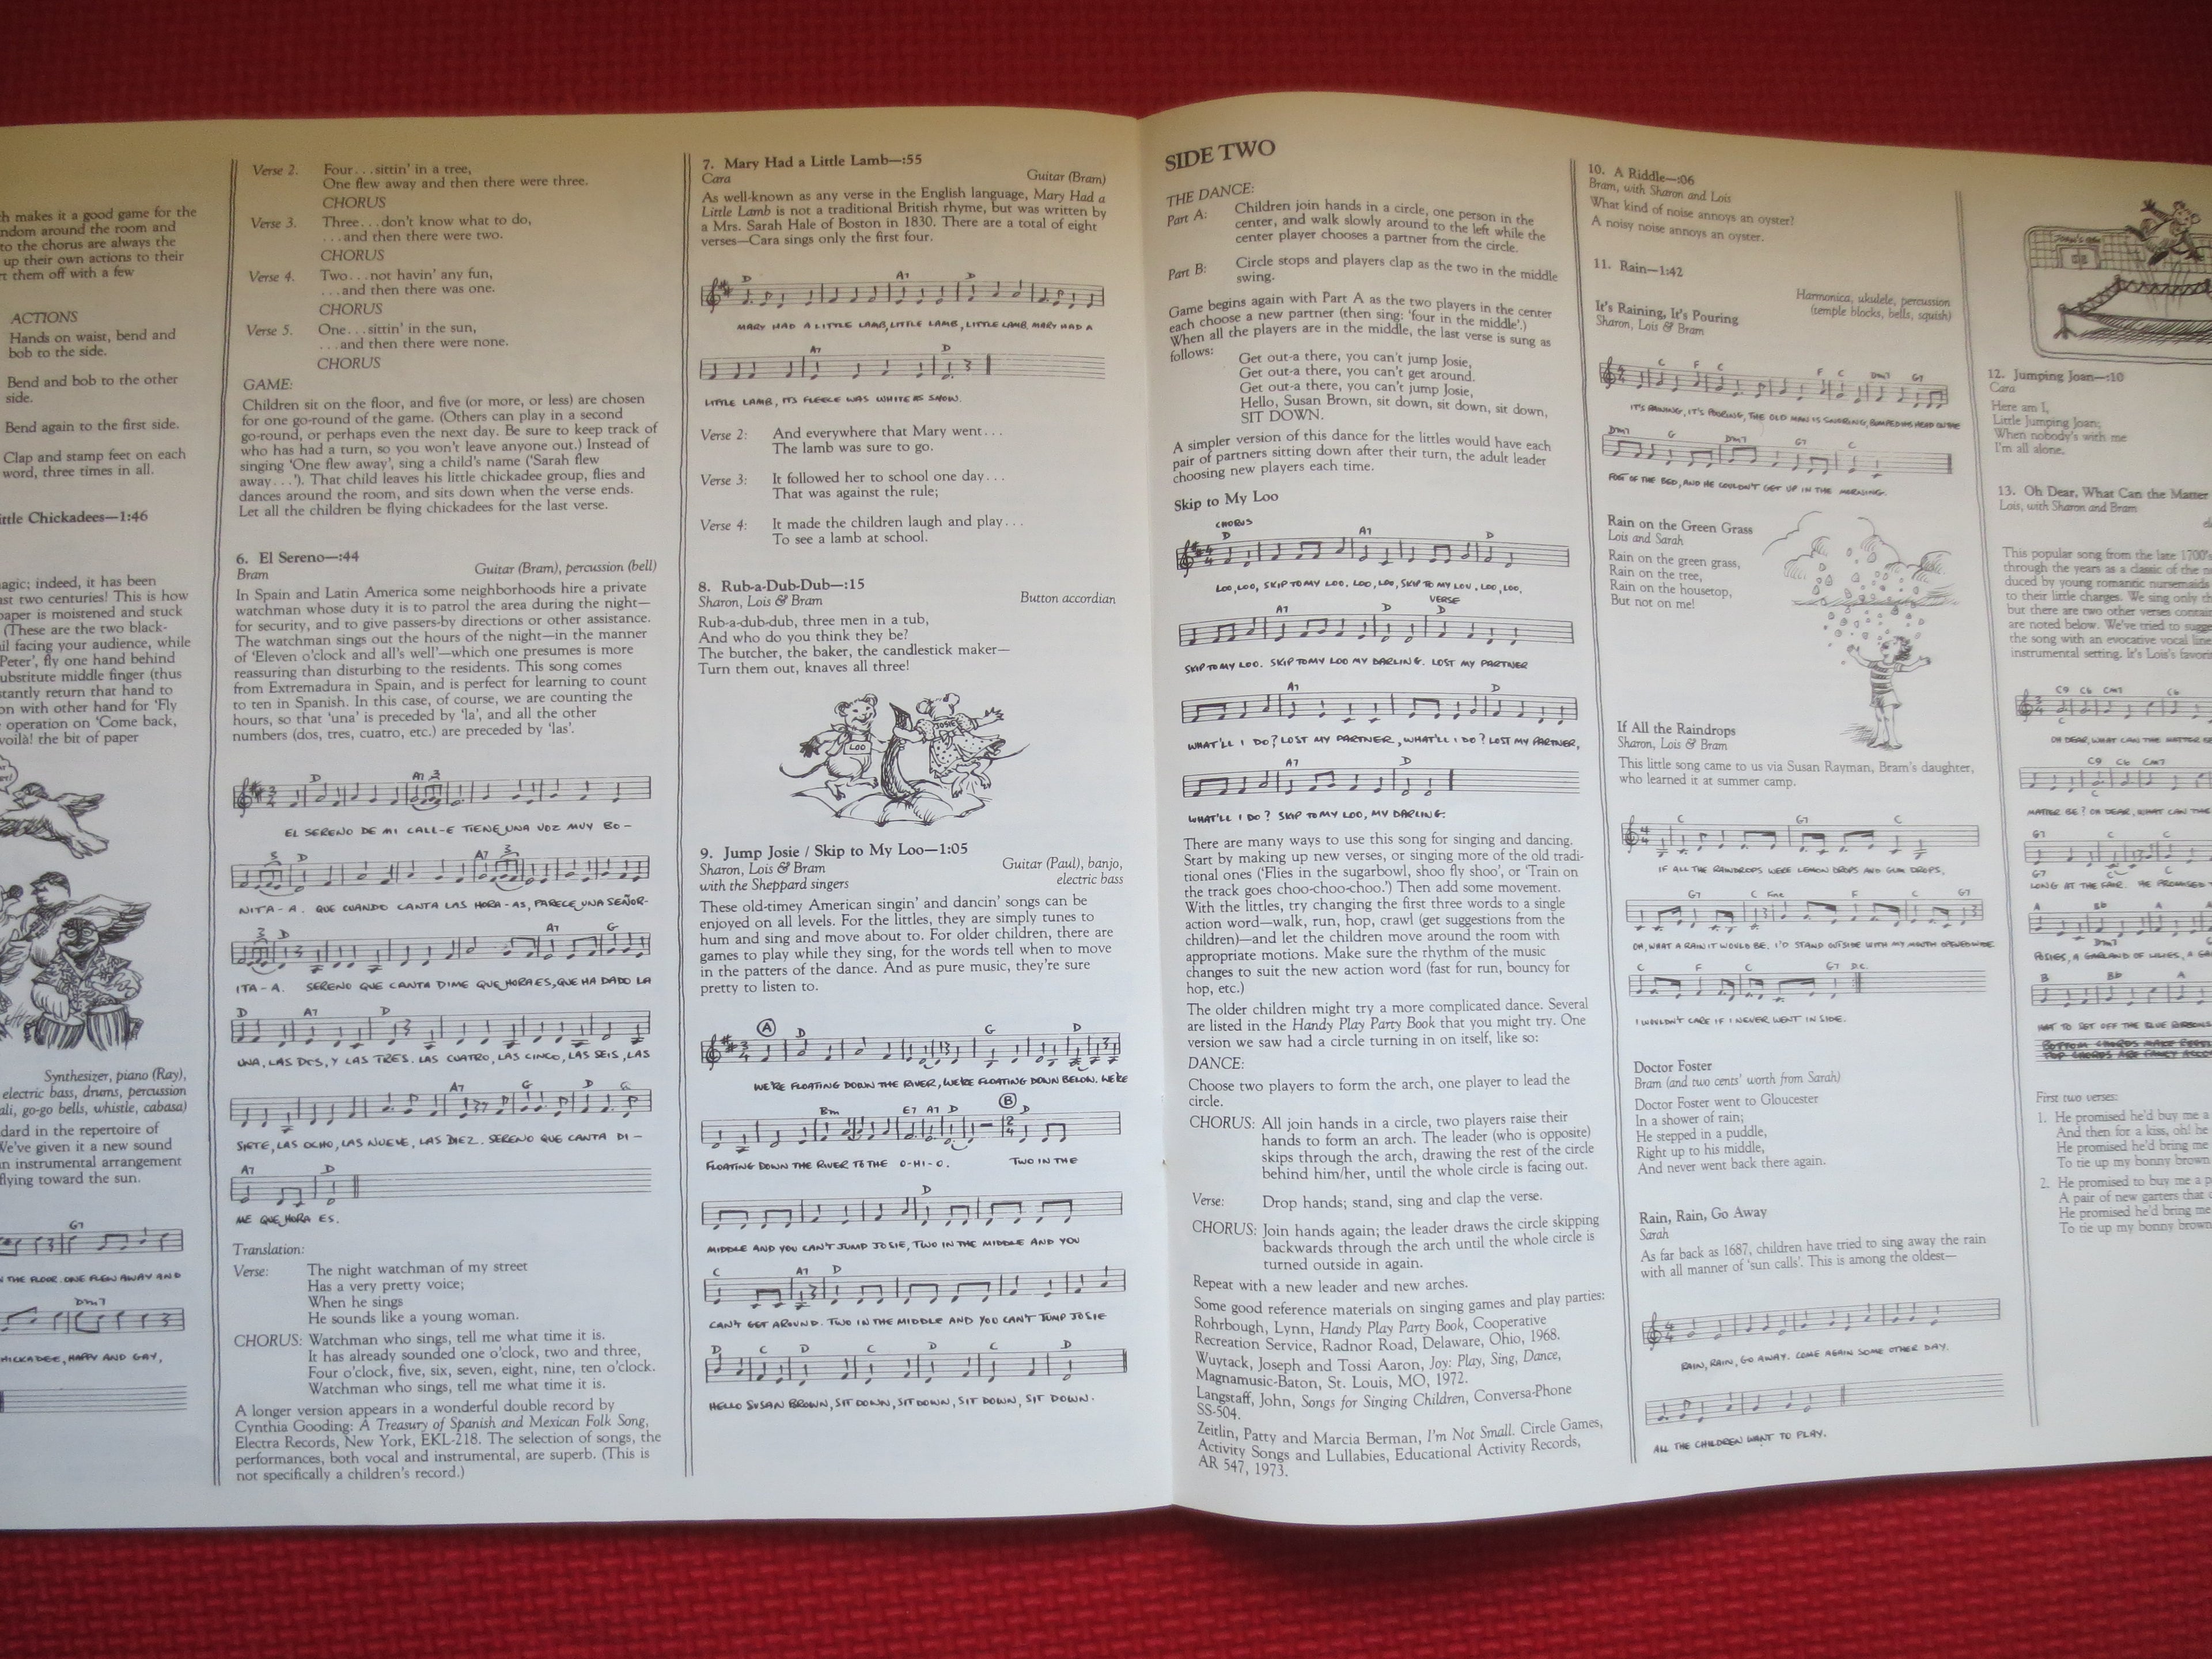 ch makes it a good game for the
ndom around the room and
to the chorus are always the
up their own actions to their
rt them off with a few
ACTIONS
Hands on waist, bend and
bob to the side.
Bend and bob to the other
side.
Bend again to the first side.
Clap and stamp feet on each
word, three times in all.
ittle Chickadees—1:46
agic; indeed, it has been
ast two centuries! This is how
paper is moistened and stuck
(These are the two black-
il facing your audience, while
Peter', fly one hand behind
ubstitute middle finger (thus
stantly return that hand to
on with other hand for 'Fly
operation on 'Come back,
voilà! the bit of paper
Synthesizer, piano (Ray),
electric bass, drums, percussion
ali, go-go bells, whistle, cabasa)
dard in the repertoire of
We've given it a new sound
n instrumental arrangement
flying toward the sun.
G7
THE FLOOR. ONE FLEW AWAY AND
Dm7
HICKADEE, HAPPY AND GAY,
Verse 2. Four. . .sittin' in a tree,
One flew away and then there were three.
CHORUS
Verse 3. Three. . .don't know what to do,
. . .and then there were two.
CHORUS
Verse 4. Two. . .not havin' any fun,
. . .and then there was one.
CHORUS
Verse 5. One. . .sittin' in the sun,
. . .and then there were none.
CHORUS
GAME:
Children sit on the floor, and five (or more, or less) are chosen
for one go-round of the game. (Others can play in a second
go-round, or perhaps even the next day. Be sure to keep track of
who has had a turn, so you won't leave anyone out.) Instead of
singing 'One flew away', sing a child's name ('Sarah flew
away. . .'). That child leaves his little chickadee group, flies and
dances around the room, and sits down when the verse ends.
Let all the children be flying chickadees for the last verse.
6. El Sereno—:44
Bram Guitar (Bram), percussion (bell)
In Spain and Latin America some neighborhoods hire a private
watchman whose duty it is to patrol the area during the night—
for security, and to give passers-by directions or other assistance.
The watchman sings out the hours of the night—in the manner
of 'Eleven o'clock and all's well'—which one presumes is more
reassuring than disturbing to the residents. This song comes
from Extremadura in Spain, and is perfect for learning to count
to ten in Spanish. In this case, of course, we are counting the
hours, so that 'una' is preceded by 'la', and all the other
numbers (dos, tres, cuatro, etc.) are preceded by 'las'.
D A7 3
EL SERENO DE MI CALL-E TIENE UNA VOZ MUY BO-
3 D A7 3
NITA-A. QUE CUANDO CANTA LAS HORA-AS, PARECE UNA SEÑOR-
3 D A7 G
ITA-A. SERENO QUE CANTA DIME QUE HORA ES, QUE HA DADO LA
D A7 D
UNA, LAS DOS, Y LAS TRES. LAS CUATRO, LAS CINCO, LAS SEIS, LAS
A7 G D G
SIETE, LAS OCHO, LAS NUEVE, LAS DIEZ. SERENO QUE CANTA DI-
A7 D
ME QUE HORA ES.
Translation:
Verse: The night watchman of my street
Has a very pretty voice;
When he sings
He sounds like a young woman.
CHORUS: Watchman who sings, tell me what time it is.
It has already sounded one o'clock, two and three,
Four o'clock, five, six, seven, eight, nine, ten o'clock.
Watchman who sings, tell me what time it is.
A longer version appears in a wonderful double record by
Cynthia Gooding: A Treasury of Spanish and Mexican Folk Song,
Electra Records, New York, EKL-218. The selection of songs, the
performances, both vocal and instrumental, are superb. (This is
not specifically a children's record.)
7. Mary Had a Little Lamb—:55
Cara Guitar (Bram)
As well-known as any verse in the English language, Mary Had a
Little Lamb is not a traditional British rhyme, but was written by
a Mrs. Sarah Hale of Boston in 1830. There are a total of eight
verses—Cara sings only the first four.
D A7 D
MARY HAD A LITTLE LAMB, LITTLE LAMB, LITTLE LAMB. MARY HAD A
A7 D
LITTLE LAMB, ITS FLEECE WAS WHITE AS SNOW.
Verse 2: And everywhere that Mary went. . .
The lamb was sure to go.
Verse 3: It followed her to school one day. . .
That was against the rule;
Verse 4: It made the children laugh and play. . .
To see a lamb at school.
8. Rub-a-Dub-Dub—:15
Sharon, Lois & Bram Button accordian
Rub-a-dub-dub, three men in a tub,
And who do you think they be?
The butcher, the baker, the candlestick maker—
Turn them out, knaves all three!
LOO
JOSIE
9. Jump Josie / Skip to My Loo—1:05
Sharon, Lois & Bram Guitar (Paul), banjo,
with the Sheppard singers electric bass
These old-timey American singin' and dancin' songs can be
enjoyed on all levels. For the littles, they are simply tunes to
hum and sing and move about to. For older children, there are
games to play while they sing, for the words tell when to move
in the patters of the dance. And as pure music, they're sure
pretty to listen to.
A D G D
WE'RE FLOATING DOWN THE RIVER, WE'RE FLOATING DOWN BELOW. WE'RE
Bm E7 A7 D B D
FLOATING DOWN THE RIVER TO THE O-HI-O. TWO IN THE
D
MIDDLE AND YOU CAN'T JUMP JOSIE, TWO IN THE MIDDLE AND YOU
C A7 D
CAN'T GET AROUND. TWO IN THE MIDDLE AND YOU CAN'T JUMP JOSIE
D C D C D C D
HELLO SUSAN BROWN, SIT DOWN, SIT DOWN, SIT DOWN, SIT DOWN.
SIDE TWO
THE DANCE:
Part A: Children join hands in a circle, one person in the
center, and walk slowly around to the left while the
center player chooses a partner from the circle.
Part B: Circle stops and players clap as the two in the middle
swing.
Game begins again with Part A as the two players in the center
each choose a new partner (then sing: 'four in the middle'.)
When all the players are in the middle, the last verse is sung as
follows:
Get out-a there, you can't jump Josie,
Get out-a there, you can't get around.
Get out-a there, you can't jump Josie,
Hello, Susan Brown, sit down, sit down, sit down,
SIT DOWN.
A simpler version of this dance for the littles would have each
pair of partners sitting down after their turn, the adult leader
choosing new players each time.
Skip to My Loo
CHORUS
D A7 D
LOO, LOO, SKIP TO MY LOO. LOO, LOO, SKIP TO MY LOU. LOO, LOO,
VERSE
A7 D D
SKIP TO MY LOO. SKIP TO MY LOO MY DARLING. LOST MY PARTNER
A7 D
WHAT'LL I DO? LOST MY PARTNER, WHAT'LL I DO? LOST MY PARTNER,
A7 D
WHAT'LL I DO? SKIP TO MY LOO, MY DARLING.
There are many ways to use this song for singing and dancing.
Start by making up new verses, or singing more of the old tradi-
tional ones ('Flies in the sugarbowl, shoo fly shoo', or 'Train on
the track goes choo-choo-choo.') Then add some movement.
With the littles, try changing the first three words to a single
action word—walk, run, hop, crawl (get suggestions from the
children)—and let the children move around the room with
appropriate motions. Make sure the rhythm of the music
changes to suit the new action word (fast for run, bouncy for
hop, etc.)
The older children might try a more complicated dance. Several
are listed in the Handy Play Party Book that you might try. One
version we saw had a circle turning in on itself, like so:
DANCE:
Choose two players to form the arch, one player to lead the
circle.
CHORUS: All join hands in a circle, two players raise their
hands to form an arch. The leader (who is opposite)
skips through the arch, drawing the rest of the circle
behind him/her, until the whole circle is facing out.
Verse: Drop hands; stand, sing and clap the verse.
CHORUS: Join hands again; the leader draws the circle skipping
backwards through the arch until the whole circle is
turned outside in again.
Repeat with a new leader and new arches.
Some good reference materials on singing games and play parties:
Rohrbough, Lynn, Handy Play Party Book, Cooperative
Recreation Service, Radnor Road, Delaware, Ohio, 1968.
Wuytack, Joseph and Tossi Aaron, Joy: Play, Sing, Dance,
Magnamusic-Baton, St. Louis, MO, 1972.
Langstaff, John, Songs for Singing Children, Conversa-Phone
SS-504.
Zeitlin, Patty and Marcia Berman, I'm Not Small. Circle Games,
Activity Songs and Lullabies, Educational Activity Records,
AR 547, 1973.
10. A Riddle—:06
Bram, with Sharon and Lois
What kind of noise annoys an oyster?
A noisy noise annoys an oyster.
11. Rain—1:42
Harmonica, ukulele, percussion
(temple blocks, bells, squish)
It's Raining, It's Pouring
Sharon, Lois & Bram
C F C F C Dm7 G7
IT'S RAINING, IT'S POURING, THE OLD MAN IS SNORING, BUMPED HIS HEAD ON THE
Dm7 G Dm7 G7 C
FOOT OF THE BED, AND HE COULDN'T GET UP IN THE MORNING.
Rain on the Green Grass
Lois and Sarah
Rain on the green grass,
Rain on the tree,
Rain on the housetop,
But not on me!
If All the Raindrops
Sharon, Lois & Bram
This little song came to us via Susan Rayman, Bram's daughter,
who learned it at summer camp.
C G7 C
IF ALL THE RAINDROPS WERE LEMON DROPS AND GUM DROPS,
G7 C Fine F C G7
OH, WHAT A RAIN IT WOULD BE. I'D STAND OUTSIDE WITH MY MOUTH OPENED WIDE
C F C G7 D.C.
I WOULDN'T CARE IF I NEVER WENT IN SIDE.
Doctor Foster
Bram (and two cents' worth from Sarah)
Doctor Foster went to Gloucester
In a shower of rain;
He stepped in a puddle,
Right up to his middle,
And never went back there again.
Rain, Rain, Go Away
Sarah
As far back as 1687, children have tried to sing away the rain
with all manner of 'sun calls'. This is among the oldest—
RAIN, RAIN, GO AWAY. COME AGAIN SOME OTHER DAY.
ALL THE CHILDREN WANT TO PLAY.
12. Jumping Joan—:10
Cara
Here am I,
Little Jumping Joan;
When nobody's with me
I'm all alone.
13. Oh Dear, What Can the Matter
Lois, with Sharon and Bram
This popular song from the late 1700's
through the years as a classic of the n
duced by young romantic nursemaids
to their little charges. We sing only th
but there are two other verses contain
are noted below. We've tried to sugge
the song with an evocative vocal line
instrumental setting. It's Lois's favori
C9 C6 Cm7 C6
OH DEAR, WHAT CAN THE MATTER BE
C9 C6 Cm7
MATTER BE? OH DEAR, WHAT CAN THE
G7 C C
LONG AT THE FAIR. HE PROMISED
A Bb A
POSIES, A GARLAND OF LILIES, A GA
B Bb A
HAT TO SET OFF THE BLUE RIBBONS
First two verses:
1. He promised he'd buy me a
And then for a kiss, oh! he
He promised he'd bring me
To tie up my bonny brown
2. He promised to buy me a p
A pair of new garters that
He promised he'd bring me
To tie up my bonny brown